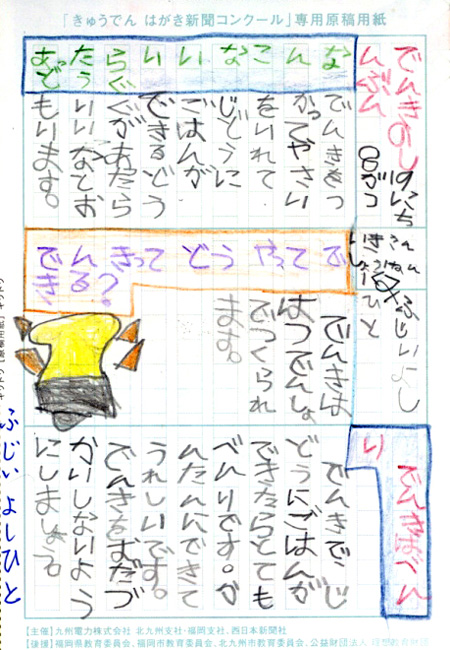 「きゅうでん はがき新聞コンクール」専用原稿用紙
でんきのし
んぶん
8がつ
19にち
ふじいよし
ひと
あったらいいなこんな
どうぐ
でんきをつ
かってやさい
をいれて
じどうに
ごはんが
できるどう
ぐがあたら
いいなとお
もいます。
でんきって どうやって で
できる?
でんきは
はつでんしょ
でつくられ
ます。
でんきはべん
り
でんきで、じ
どうにごはんが
できたらとても
べんりです。か
んたんにできて
うれしいです。
でんきをむだづ
かいしないよう
にしましょう。
ふじい よしひと
【主催】九州電力株式会社 北九州支社・福岡支社、西日本新聞社
【後援】福岡県教育委員会、福岡市教育委員会、北九州市教育委員会、公益財団法人 理想教育財団